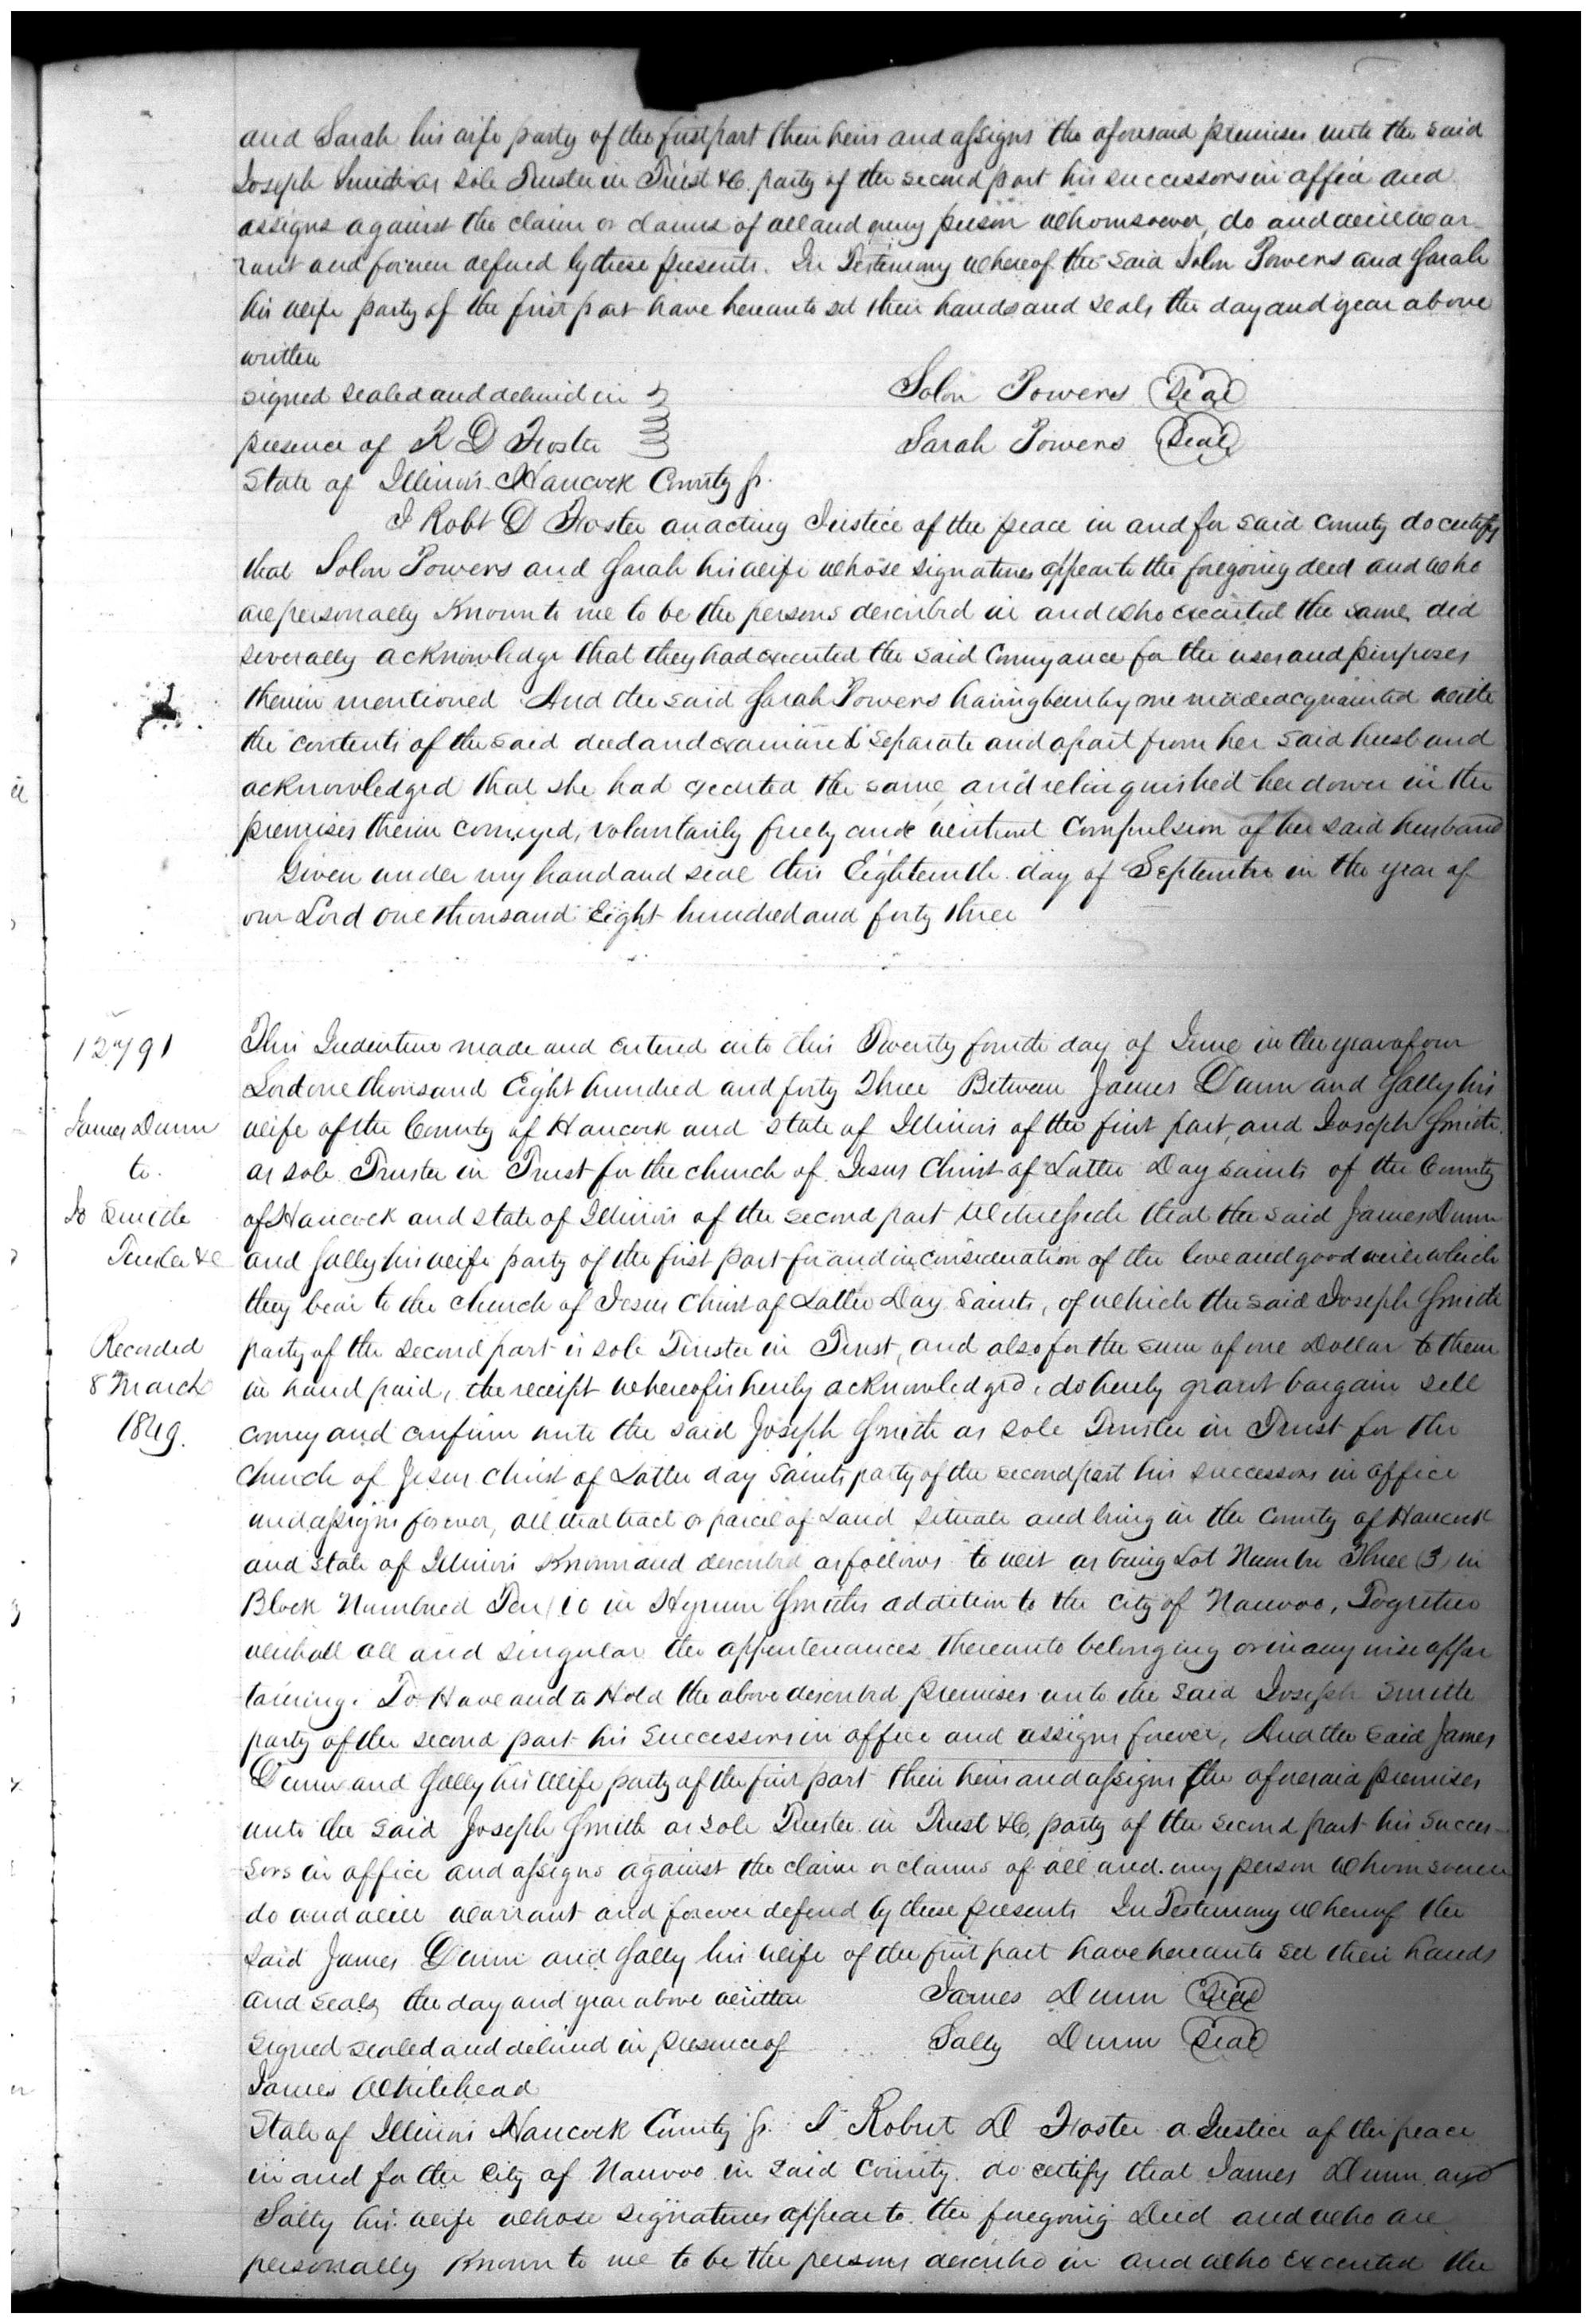 and Sarah his wife party of the first part their heirs and assigns the aforesaid premises unto the said
Joseph Smith as sole Trustee in Trust &C. party of the second part his successors in office and
assigns against the claim or claims of all and every person whomsoever, do and will war-
rant and forever defend by these presents. In Testimony whereof the said Solon Powers and Sarah
his wife party of the first part have hereunto set their hands and seals the day and year above
written
signed sealed and deliverd in
Solon Powers Seal
presence of R D Foster
Sarah Powers Seal
State of Illinois Hancock County Ss.
I Robt D Foster an acting Justice of the peace in and for said County do certify
that Solon Powers and Sarah his wife whose signatures appear to the foregoing deed and who
are personally Known to me to be the persons described in and who executed the same, did
severally acknowledge that they had executed the said Conveyance for the uses and purposes
therein mentioned And the said Sarah Powers having been by me made acquainted with
the contents of the said deed and examined separate and apart from her said husband
acknowledged that she had executed the same, and relinquished her dower in the
premises therein conveyed, voluntarily freely and without Compulsion of her said husband
Given under my hand and seal this Eighteenth day of September in the year of
our Lord one thousand Eight hundred and forty three
12791
James Dunn
to.
Jo Smith
Trustee &c
Recorded
8 March
1849.
This Indenture made and entered into this Twenty fourth day of June in the year of our
Lord one thousand Eight hundred and forty Three Between James Dunn and Sally his
wife of the County of Hancock and state of Illinois of the first part, and Joseph Smith
as sole Trustee in Trust for the church of Jesus Christ of Latter Day saints of the County
of Hancock and state of Illinois of the second part Witnesseth that the said James Dunn
and Sally his wife party of the first part for and in consideration of the love and good will which
they bear to the church of Jesus Christ of Latter Day Saints, of which the said Joseph Smith
party of the second part is sole Trustee in Trust, and also for the sum of one Dollar to them
in hand paid, the receipt whereof is hereby acknowledged, do hereby grant bargain sell
convey and confirm unto the said Joseph Smith as sole Trustee in Trust for the
church of Jesus Christ of Latter day Saints party of the second part his successors in office
and assigns forever, all that tract or parcel of Land situate and lying in the County of Hancock
and state of Illinois Known and described as follows to wit as being Lot Number Three (3) in
Block Numbered Ten (10 in Hyrum Smiths addition to the city of Nauvoo, Together
with all all and singular the appertenances thereunto belonging or in any wise apper
taining. To Have and to Hold the above described premises unto the said Joseph Smith
party of the second part his successors in office and assigns forever, And the said James
Dunn and Sally his Wife party of the first part their heirs and assigns the aforesaid premises
unto the said Joseph Smith as sole Trustee in Trust &C, party of the second part his succes-
sors in office and assigns against the claim or claims of all and every person whomsoever
do and will warrant and forever defend by these presents In Testimony whereof the
said James Dunn and Sally his Wife of the first part have hereunto set their hands
and seals the day and year above written
James Dunn Seal
signed sealed and deliverd in presence of
Sally Dunn Seal
James Whitehead
State of Illinois Hancock County Ss. I Robert D Foster a Justice of the peace
in and for the City of Nauvoo in said County. do certify that James Dunn and
Sally his wife whose signatures appear to the foregoing Deed and who are
personally Known to me to be the persons describd in and who executed the